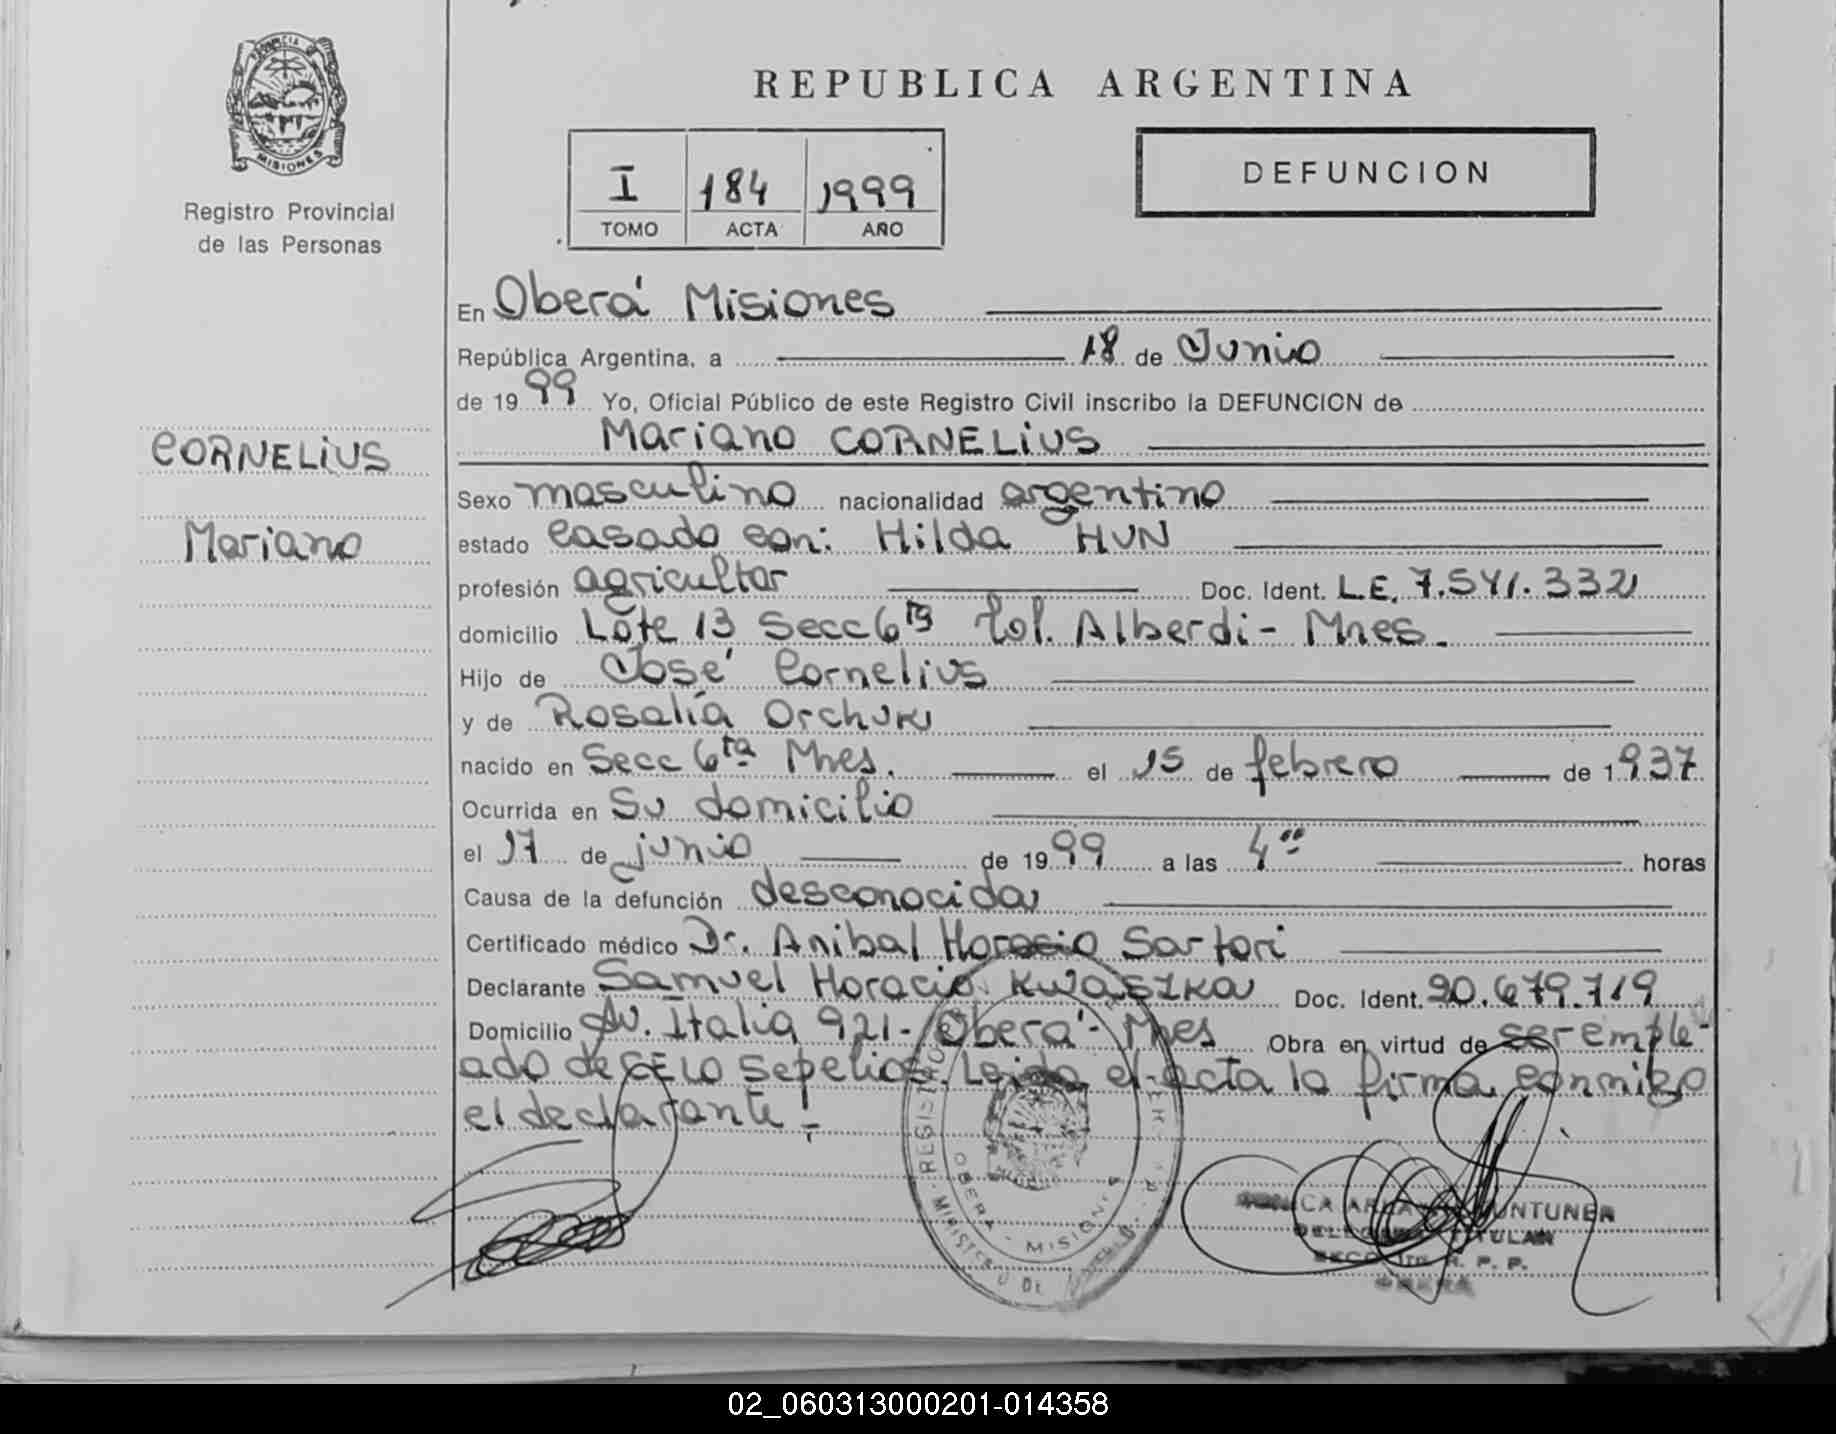 PROVINCIA DE
MISIONES
Registro Provincial
de las Personas
CORNELIUS
Mariano
REPUBLICA ARGENTINA
I 184 1999
TOMO ACTA AÑO
DEFUNCION
En Oberá Misiones
República Argentina, a 18 de Junio
de 1999 Yo, Oficial Público de este Registro Civil inscribo la DEFUNCION de
Mariano CORNELIUS
Sexo masculino nacionalidad argentino
estado casado con: Hilda HUN
profesión agricultor Doc. Ident. L.E. 7.541.332
domicilio Lote 13 Secc 6ta Col. Alberdi - Mnes.
Hijo de José Cornelius
y de Rosalía Orchuki
nacido en Secc 6ta Mnes. el 15 de febrero de 1937
Ocurrida en Su domicilio
el 17 de junio de 1999 a las 4 horas
Causa de la defunción desconocida
Certificado médico Dr. Anibal Horacio Sartori
Declarante Samuel Horacio KWASZKA Doc. Ident. 20.679.719
Domicilio Av. Italia 921 - Oberá - Mnes Obra en virtud de ser emple-
ado de CELO Sepelios. Leida el acta la firma conmigo
el declarante!
REGISTRO
MINISTERIO DE
OBERA - MISIONES
DELEGADA TITULAR
R. P. P.
OBERÁ
02_060313000201-014358